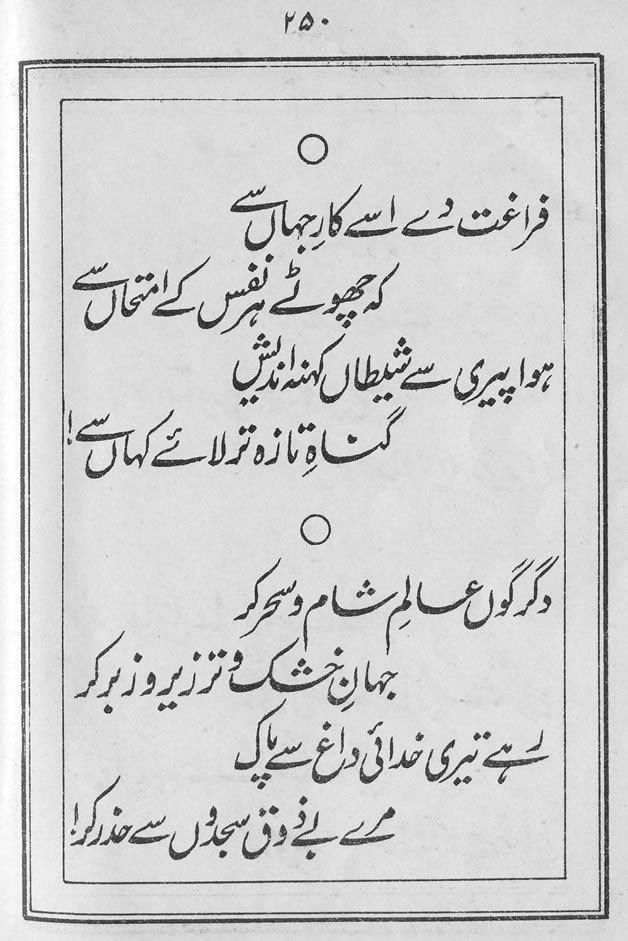 ۲۵۰
فراغت دے اسے کارِ جہاں سے
کہ چھوٹے ہر نفس کے امتحاں سے
ہوا پیری سے شیطاں کہنہ اندیش
گناہِ تازہ تر لائے کہاں سے!
دگرگوں عالمِ شام و سحر کر
جہانِ خشک و تر زیر و زبر کر
رہے تیری خدائی داغ سے پاک
مرے بے ذوق سجدوں سے حذر کر!